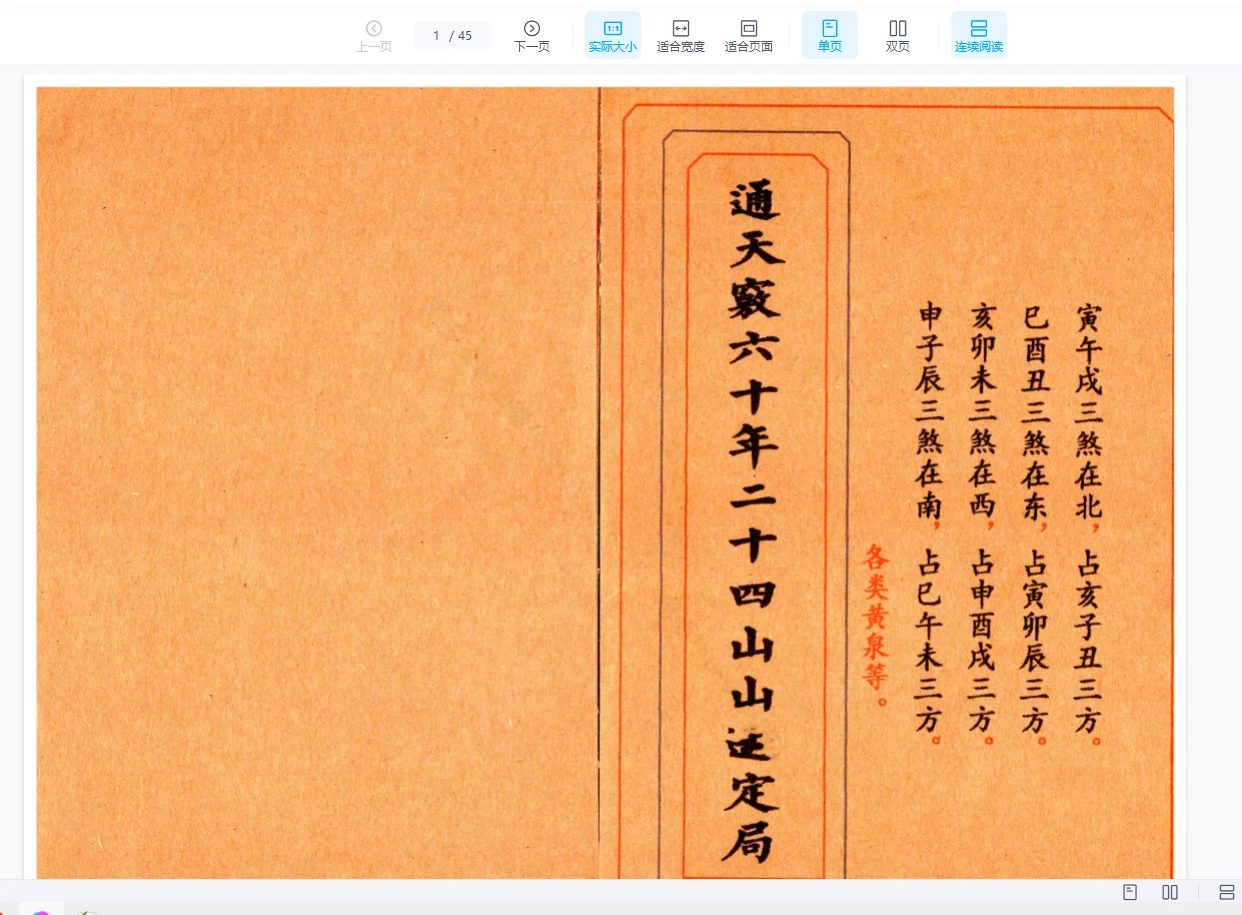 上一页
1 / 45
下一页
实际大小
适合宽度
适合页面
单页
双页
连续阅读
寅午戌三煞在北，占亥子丑三方。
巳酉丑三煞在东，占寅卯辰三方。
亥卯未三煞在西，占申酉戌三方。
申子辰三煞在南，占巳午未三方。
各类黄泉等。
通天竅六十年二十四山山定局